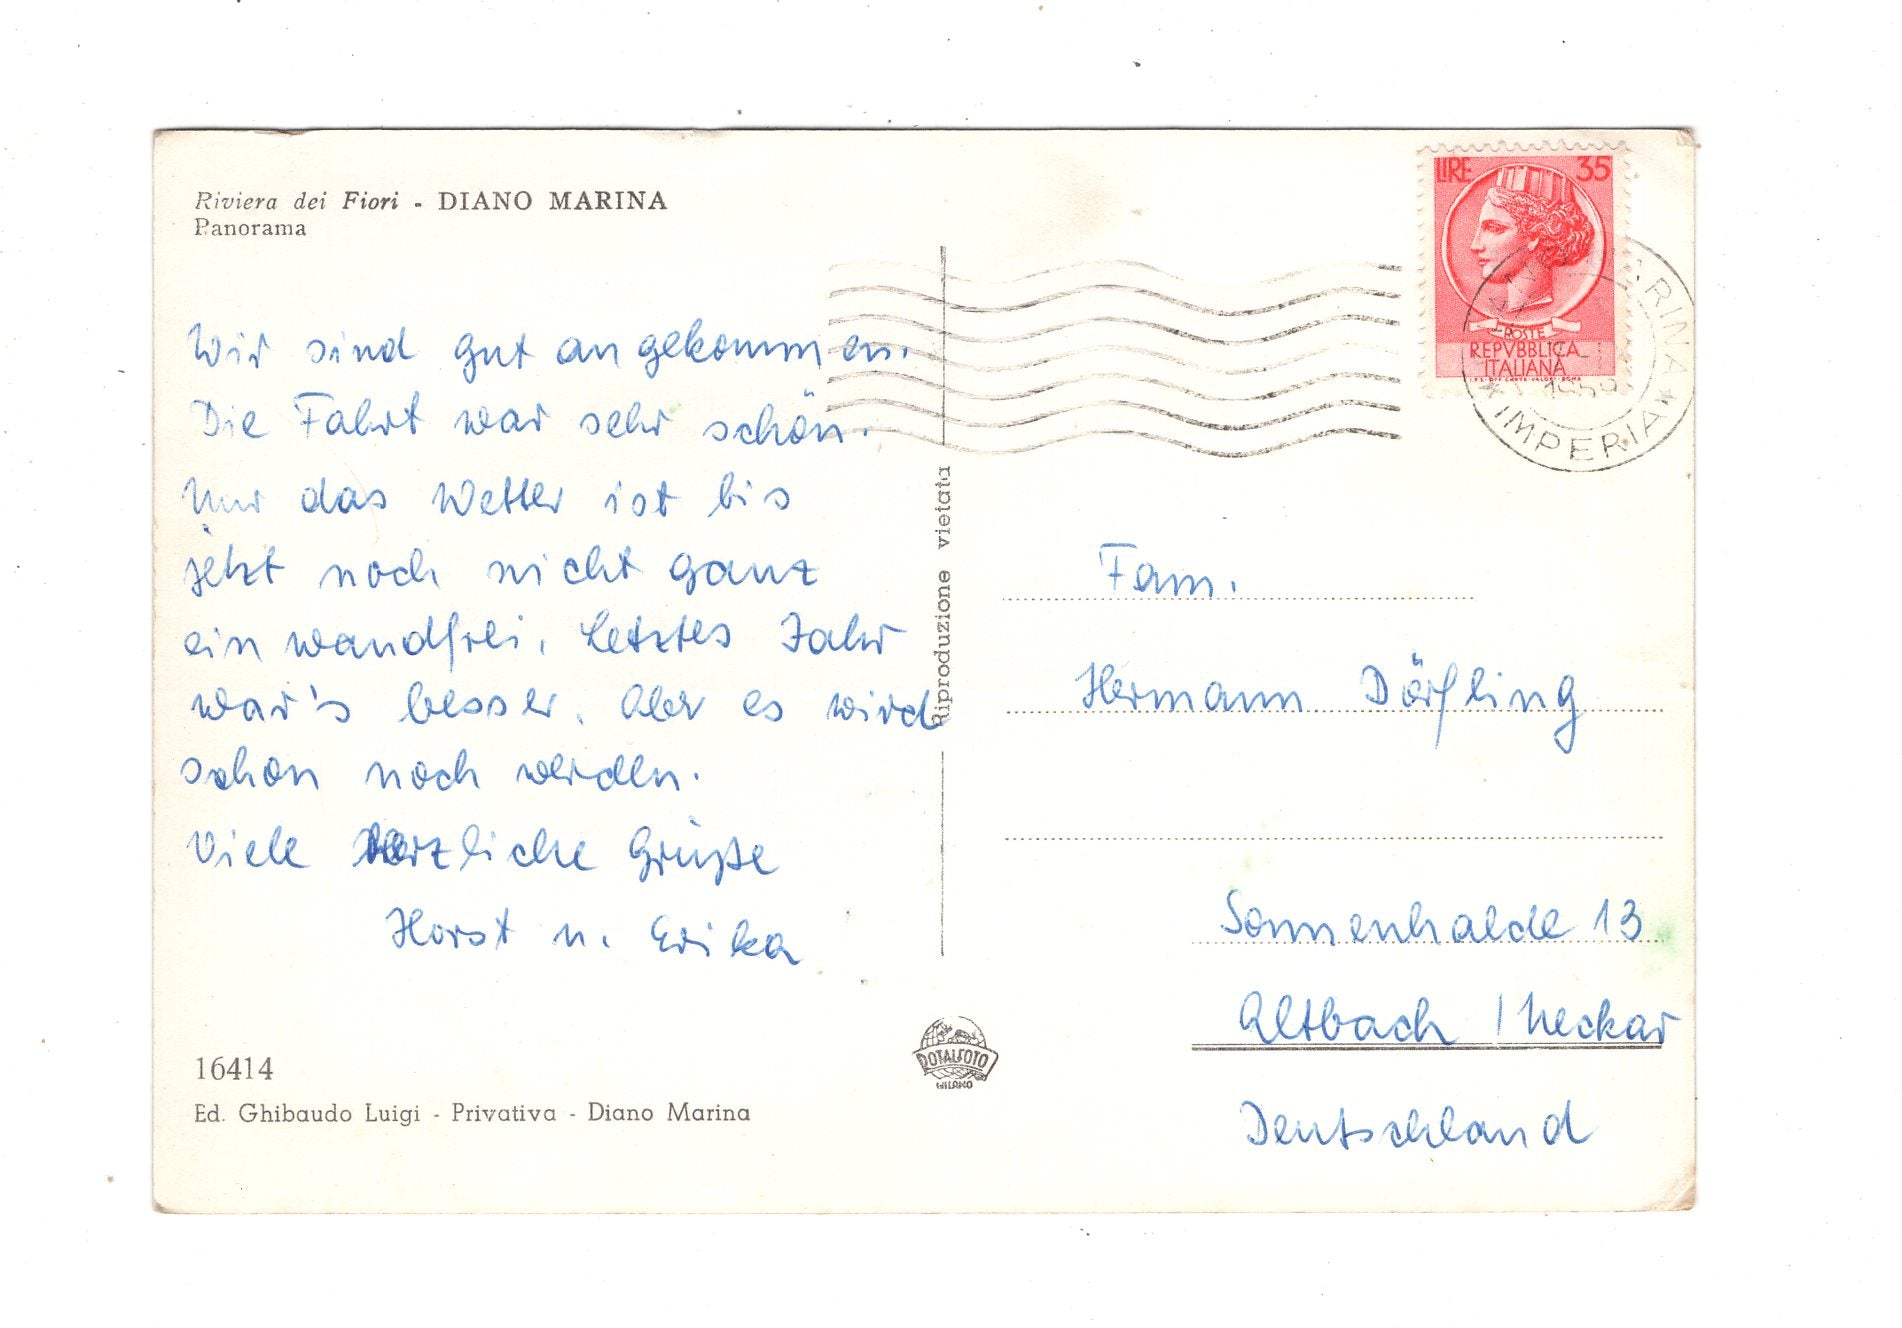 Riviera dei Fiori - DIANO MARINA
Panorama
Wir sind gut angekommen.
Die Fahrt war sehr schön.
Nur das Wetter ist bis
jetzt noch nicht ganz
einwandfrei. Letztes Jahr
war's besser. Aber es wird
schon noch werden.
Viele herzliche Grüße
Horst u. Erika
16414
Ed. Ghibaudo Luigi - Privativa - Diano Marina
Riproduzione vietata
DOTALFOTO
MILANO
LIRE 35
POSTE
REPVBBLICA
ITALIANA
I.P.S. OFF. CARTE-VALORI-ROMA
IMPERIA
Fam.
Hermann Dörfling
Sonnenhalde 13
Altbach / Neckar
Deutschland